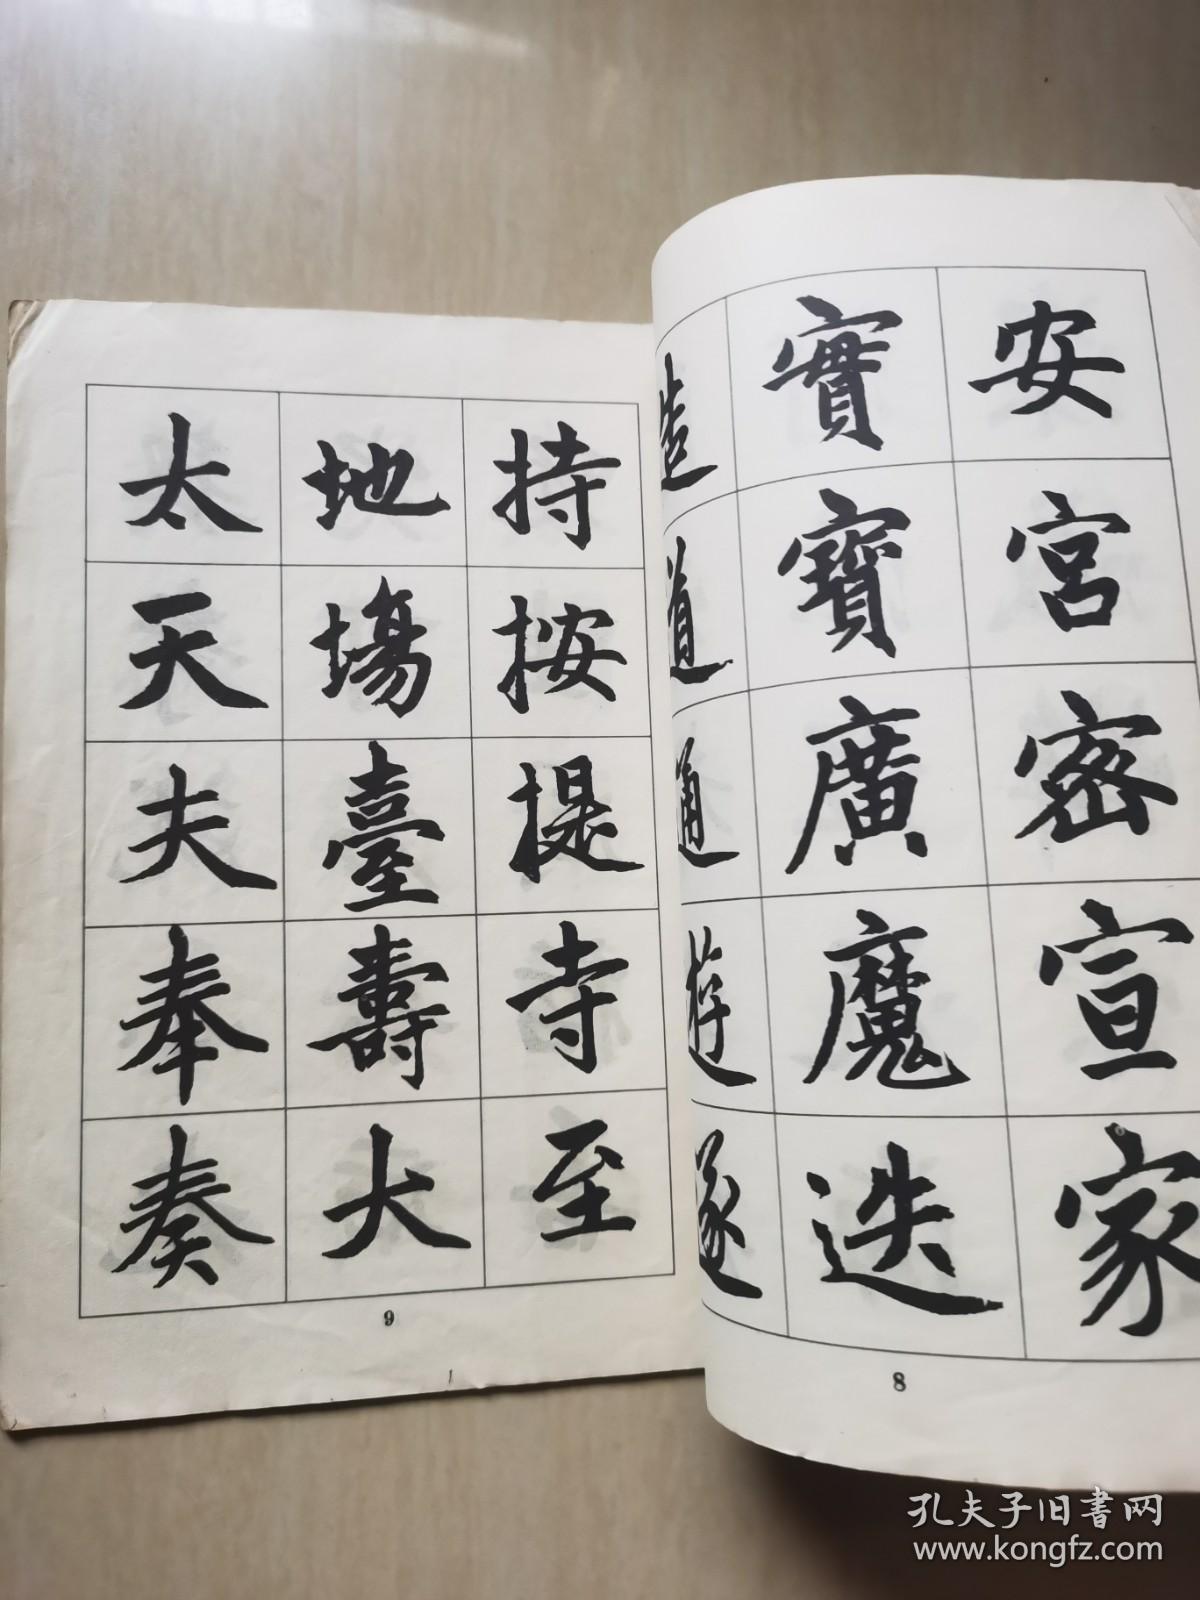 安宮密宣家
實寶廣魔迭
造道通遊遂
8
持按提寺至
地場臺壽大
太天夫奉奏
9
孔夫子旧書网
www.kongfz.com